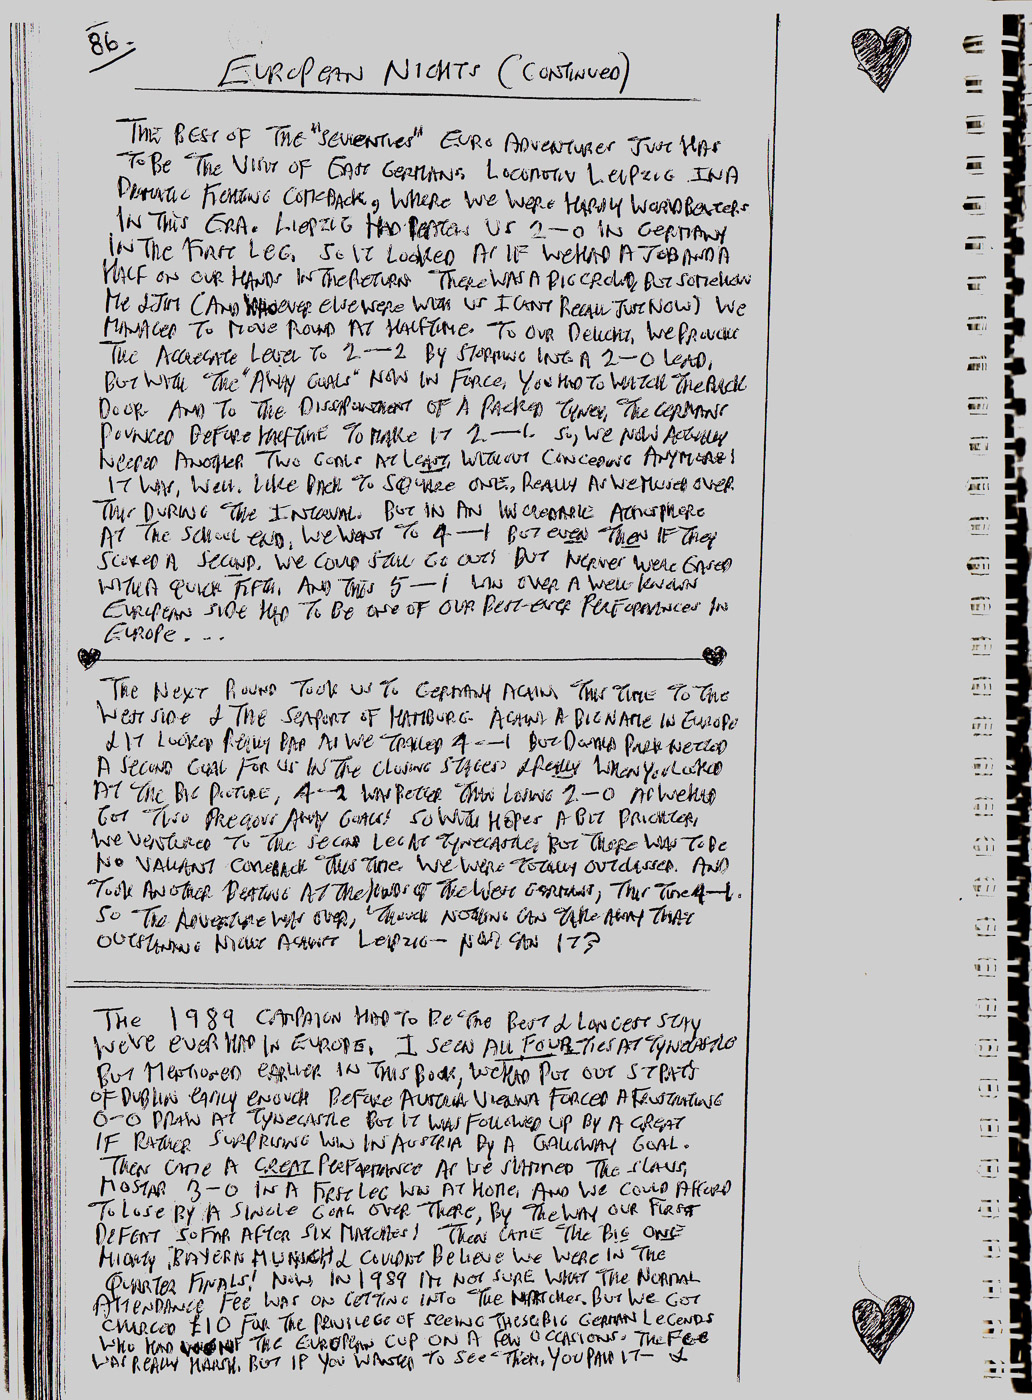 86.
EUROPEAN NIGHTS (CONTINUED)
THE BEST OF THE "SEVENTIES" EURO ADVENTURES JUST HAS
TO BE THE VISIT OF EAST GERMANS LOCOMOTIV LEIPZIG IN A
DRAMATIC FIGHTING COMEBACK, WHERE WE WERE HARDLY WORLDBEATERS
IN THIS ERA. LIEPZIG HAD BEATEN US 2-0 IN GERMANY
IN THE FIRST LEG, SO IT LOOKED AS IF WE HAD A JOB AND A
HALF ON OUR HANDS IN THE RETURN THERE WAS A BIG CROWD, BUT SOMEHOW
ME & JIM (AND WHOEVER ELSE WERE WITH US I CANT RECALL JUST NOW) WE
MANAGED TO MOVE ROUND AT HALFTIME. TO OUR DELIGHT, WE BROUGHT
THE AGGREGATE LEVEL TO 2-2 BY STORMING INTO A 2-0 LEAD,
BUT WITH THE "AWAY GOALS" NOW IN FORCE, YOU HAD TO WATCH THE BACK
DOOR AND TO THE DISSAPOINTMENT OF A PACKED TYNEY, THE GERMANS
POUNCED BEFORE HALFTIME TO MAKE IT 2-1. SO, WE NOW ACTUALLY
NEEDED ANOTHER TWO GOALS AT LEAST, WITHOUT CONCEDING ANYMORE!
IT WAS, WELL. LIKE BACK TO SQUARE ONE, REALLY AS WE MUSED OVER
THIS DURING THE INTERVAL. BUT IN AN INCREDABLE ATMOSPHERE
AT THE SCHOOL END, WE WENT TO 4-1 BUT EVEN THEN IF THEY
SCORED A SECOND, WE COULD STILL GO OUT! BUT NERVES WERE EASED
WITH A QUICK FIFTH, AND THIS 5-1 WIN OVER A WELL KNOWN
EUROPEAN SIDE HAD TO BE ONE OF OUR BEST-EVER PERFORMANCES IN
EUROPE....
THE NEXT ROUND TOOK US TO GERMANY AGAIN, THIS TIME TO THE
WEST SIDE & THE SEAPORT OF HAMBURG. AGAIN A BIG NAME IN EUROPE
& IT LOOKED REALLY BAD AS WE TRAILED 4-1 BUT DONALD PARK NETTED
A SECOND GOAL FOR US IN THE CLOSING STAGES & REALLY WHEN YOU LOOKED
AT THE BIG PICTURE, 4-2 WAS BETTER THAN LOSING 2-0 AS WE HAD
GOT TWO PRECIOUS AWAY GOALS! SO WITH HOPES A BIT BRIGHTER,
WE VENTURED TO THE SECOND LEG AT TYNECASTLE, BUT THERE WAS TO BE
NO VALIANT COMEBACK THIS TIME. WE WERE TOTALLY OUTCLASSED. AND
TOOK ANOTHER BEATING AT THE HANDS OF THE WEST GERMANS, THIS TIME 4-1.
SO THE ADVENTURE WAS OVER, THOUGH NOTHING CAN TAKE AWAY THAT
OUTSTANDING NIGHT AGAINST LEIPZIG - NOW CAN IT?
THE 1989 CAMPAIGN HAD TO BE THE BEST & LONGEST STAY
WE'VE EVER HAD IN EUROPE. I SEEN ALL FOUR TIES AT TYNECASTLE
BUT MENTIONED EARLIER IN THIS BOOK, WE HAD PUT OUT ST PATS
OF DUBLIN EASILY ENOUGH BEFORE AUSTRIA VIENNA FORCED A FRUSTRATING
0-0 DRAW AT TYNECASTLE BUT IT WAS FOLLOWED UP BY A GREAT
IF RATHER SURPRISING WIN IN AUSTRIA BY A GALLOWAY GOAL.
THEN CAME A GREAT PERFORMANCE AS WE SLAMMED THE SLAVS,
MOSTAR 3-0 IN A FIRST LEG WIN AT HOME, AND WE COULD AFFORD
TO LOSE BY A SINGLE GOAL OVER THERE, BY THE WAY OUR FIRST
DEFEAT SO FAR AFTER SIX MATCHES! THEN CAME THE BIG ONE
MIGHTY BAYERN MUNICH, & COULDNT BELIEVE WE WERE IN THE
QUARTER FINALS! NOW, IN 1989 I'M NOT SURE WHAT THE NORMAL
ATTENDANCE FEE WAS ON GETTING INTO THE MATCHES. BUT WE GOT
CHARGED £10 FOR THE PRIVILEGE OF SEEING THESE BIG GERMAN LEGENDS
WHO HAD WON THE EUROPEAN CUP ON A FEW OCCASIONS. THE FEE
WAS REALLY HARSH, BUT IF YOU WANTED TO SEE THEM, YOU PAID IT - &